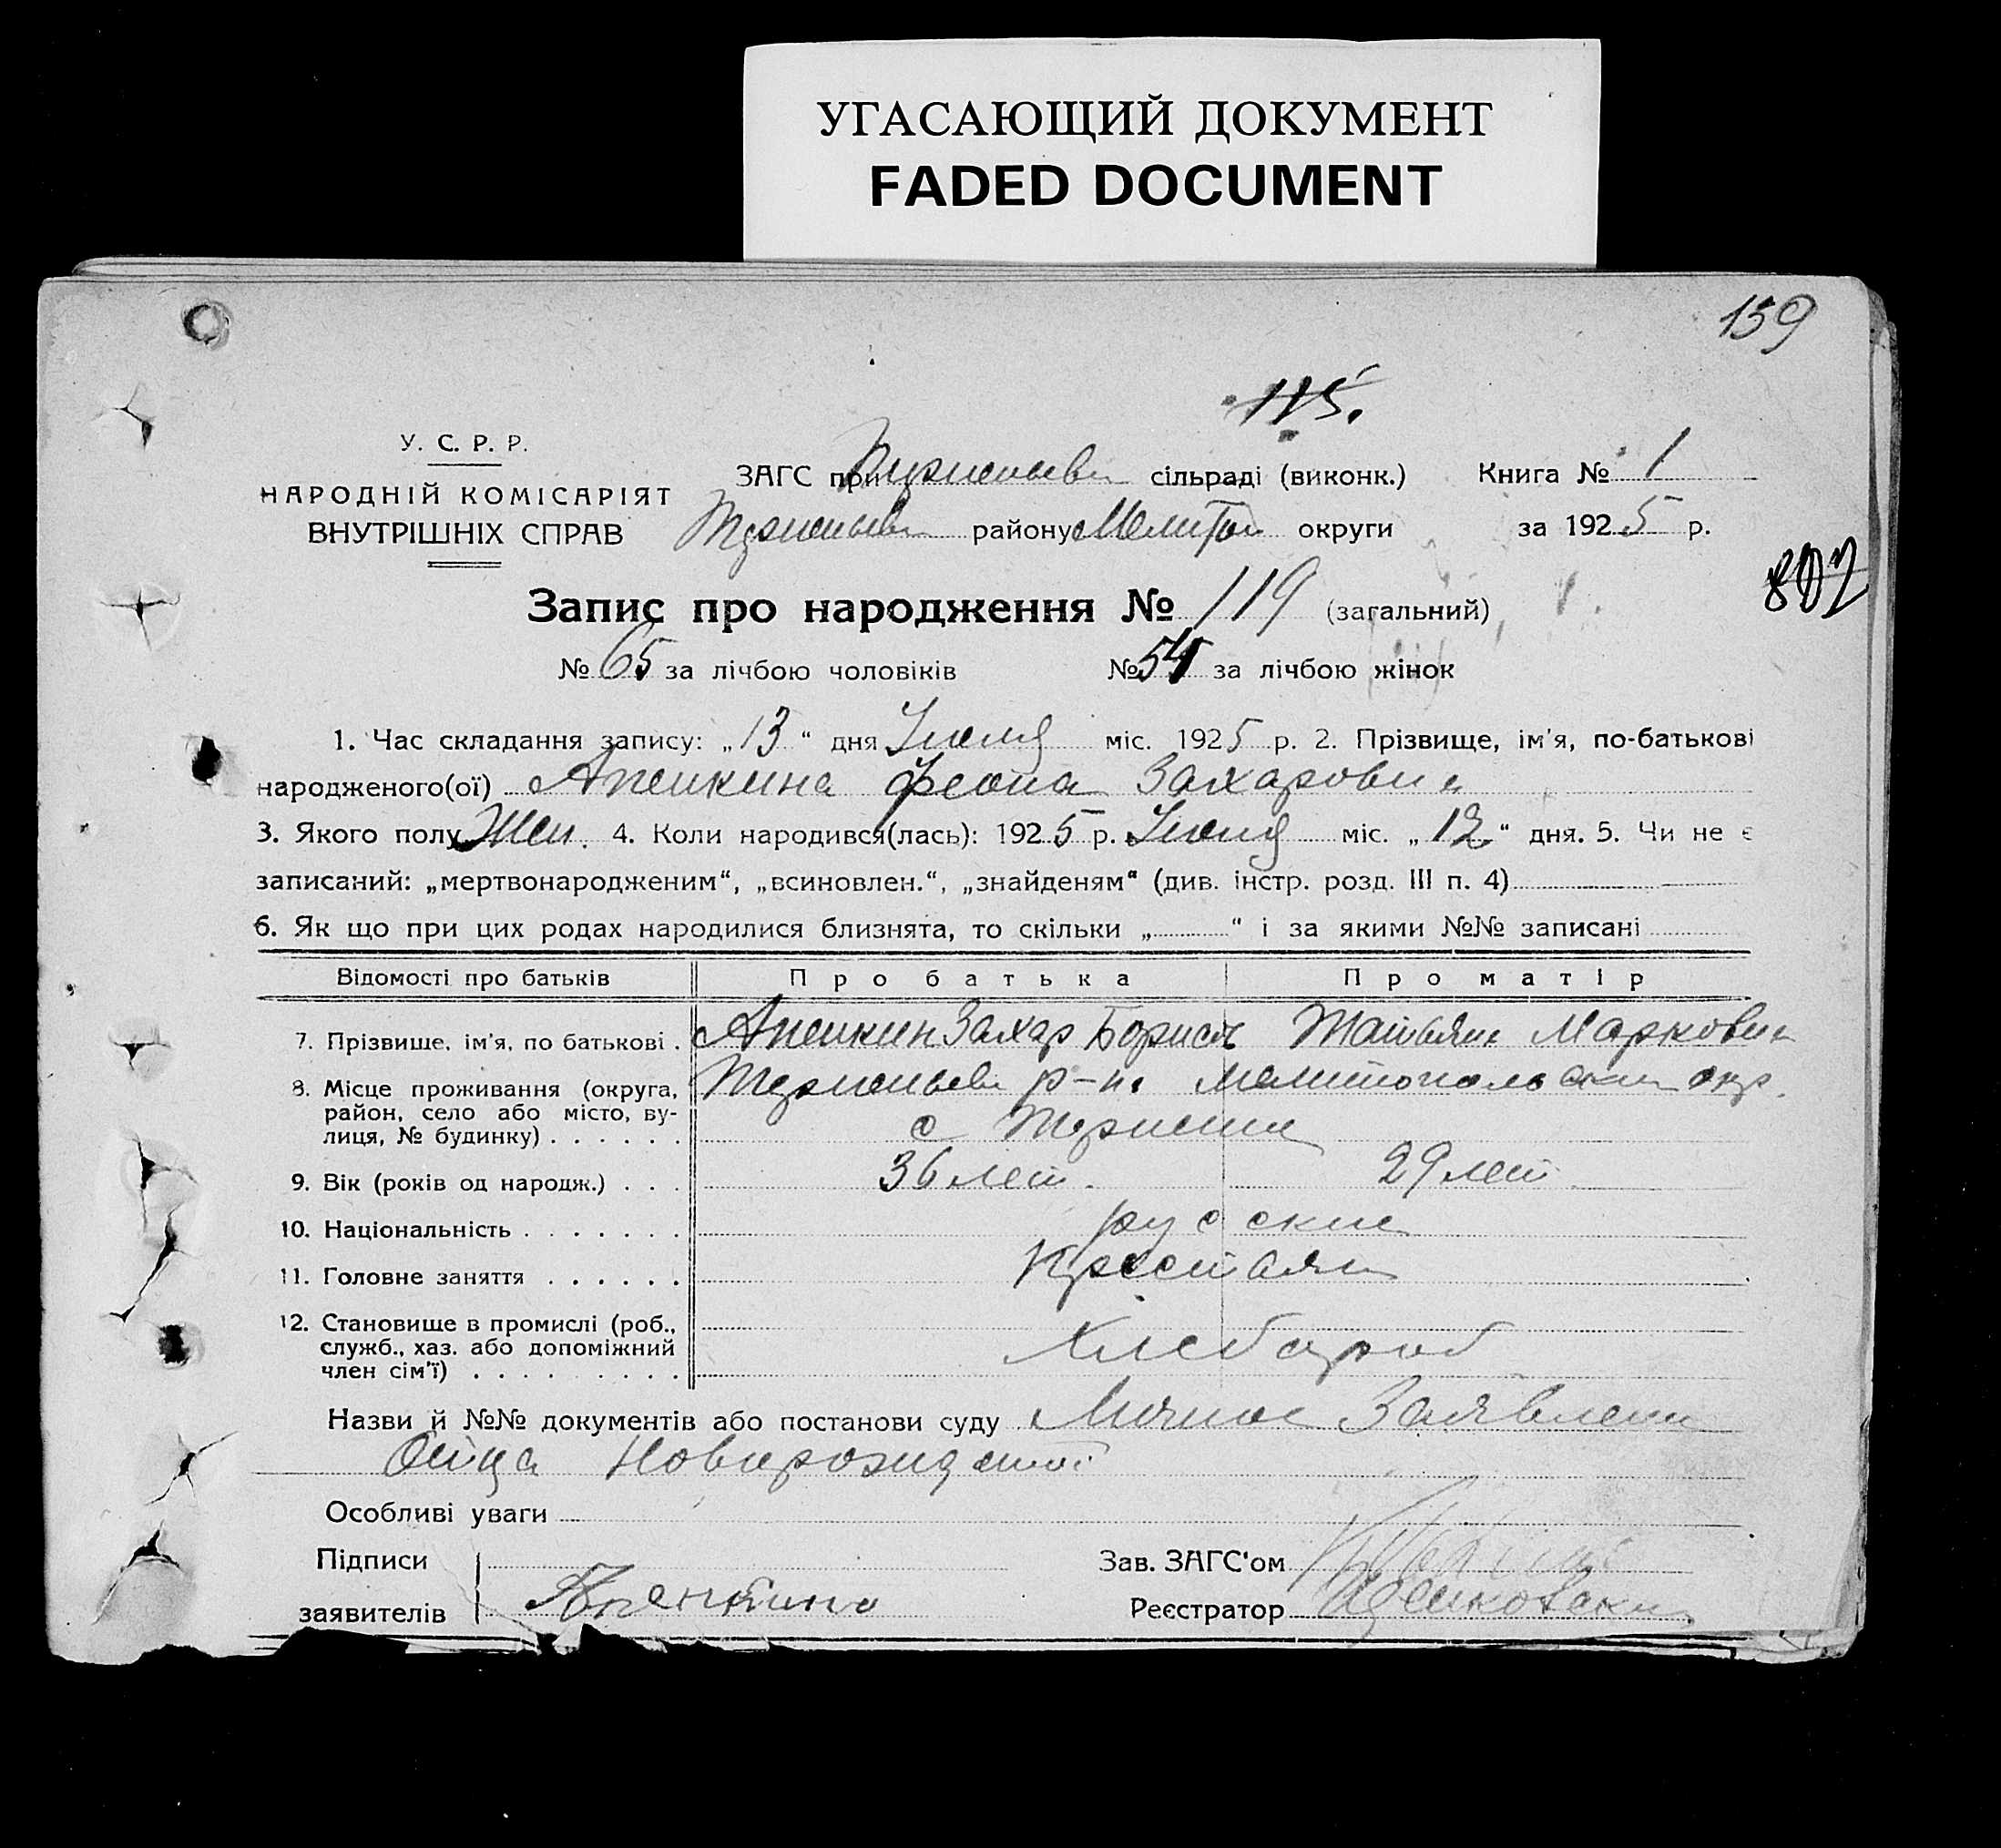 УГАСАЮЩИЙ ДОКУМЕНТ
FADED DOCUMENT
159
115.
У. С. Р. Р.
НАРОДНІЙ КОМІСАРІЯТ
ВНУТРІШНІХ СПРАВ
ЗАГС при сільраді (виконк.) Книга № 1
району Мелитоп округи за 1925 р.
802
Запис про народження № 119 (загальний)
№ 65 за лічбою чоловіків № 54 за лічбою жінок
1. Час складання запису: „13“ дня Июля міс. 1925 р. 2. Прізвище, ім'я, по-батькові
народженого(ої) Апенкина Феона Захаровна
3. Якого полу Жен. 4. Коли народився(лась): 1925 р. Июля міс. „12“ дня. 5. Чи не є
записаний: „мертвонародженим“, „всиновлен.“, „знайденям“ (див. інстр. розд. III п. 4)
6. Як що при цих родах народилися близнята, то скільки „ “ і за якими №№ записані
Відомості про батьків Про батька Про матір
7. Прізвище, ім'я, по батькові . Апенкин Захар Борисов Татьяна Марковна
8. Місце проживання (округа, район, село або місто, вулиця, № будинку) . . . . . . р-на Мелитопольский окр.
с
9. Вік (років од народж.) . . . 36 лет. 29 лет
10. Національність . . . . . . . русские
11. Головне заняття . . . . . . Крестьян
12. Становище в промислі (роб., служб., хаз. або допоміжний член сім'ї) . . . . . . . . . Хлебороб
Назви й №№ документів або постанови суду Личное Заявлени
Отца Новорожденой
Особливі уваги
Підписи Зав. ЗАГС'ом
заявителів Апенкина Реєстратор